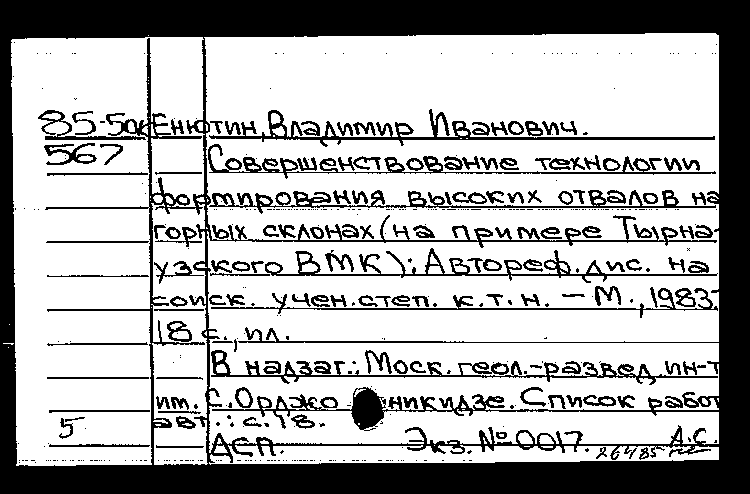 85-5ок Енютин, Владимир Иванович.
567 Совершенствование технологии
формирования высоких отвалов на
горных склонах (на примере Тырна-
узского ВМК): Автореф. дис. на
соиск. учен. степ. к.т.н. – М., 1983.
18 с., ил.
В надзаг.: Моск. геол.-развед. ин-т
им. С. Орджоникидзе. Список работ
5 авт.: с. 18.
ДСП. Экз. № 0017. 26485 А.С.